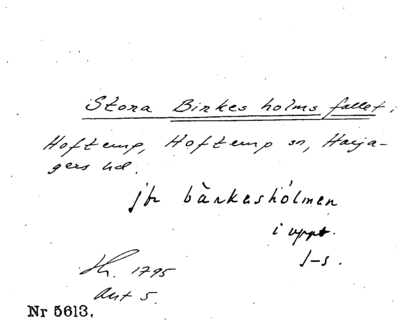 Stora Birkes holms fallet;
Hofterup, Hofterup sn, Harja-
gers hd.
jfr bärkeshólmen
i uppt.
J-s.
Lh. 1795
akt 5.
Nr 5613.